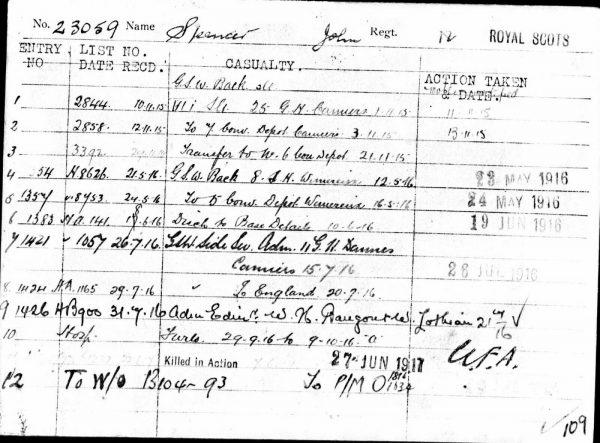 No. 23059 Name Spencer John Regt. 12 ROYAL SCOTS
ENTRY NO LIST NO. DATE RECD. CASUALTY. ACTION TAKEN & DATE.
G.S.W. Back
1 2844 10.11.15 25 G.H. Camiers 1.11.15
2 2858 12.11.15 To 7 Conv. Depot Camiers 3.11.15 13.11.15
3 Transfer to No. 6 Con Depot 21.11.15
4 H8626 21.5.16 G.S.W. Back 8. S.H. Wimereux 12.5.16 23 MAY 1916
5 1357 8953 24.5.16 To 5 Conv. Depot Wimereux 16.5.16 24 MAY 1916
6 1383 H.A. 141 Disch to Base Details 10.6.16 19 JUN 1916
7 1421 1057 26.7.16 Side Sev. Adm. 11 G.H. Dannes
Camiers 15.7.16 28 JUL 1916
8 1424 H.A. 1165 29.7.16 " To England 20.7.16
9 1426 HB900 31.7.16 Adm W. H. Bangour Lothian
10 Hosp. Furlo. 29.9.16 to 9.10.16
Killed in Action 27 JUN 1917
12 To W/O B104-93 To P/M O
109